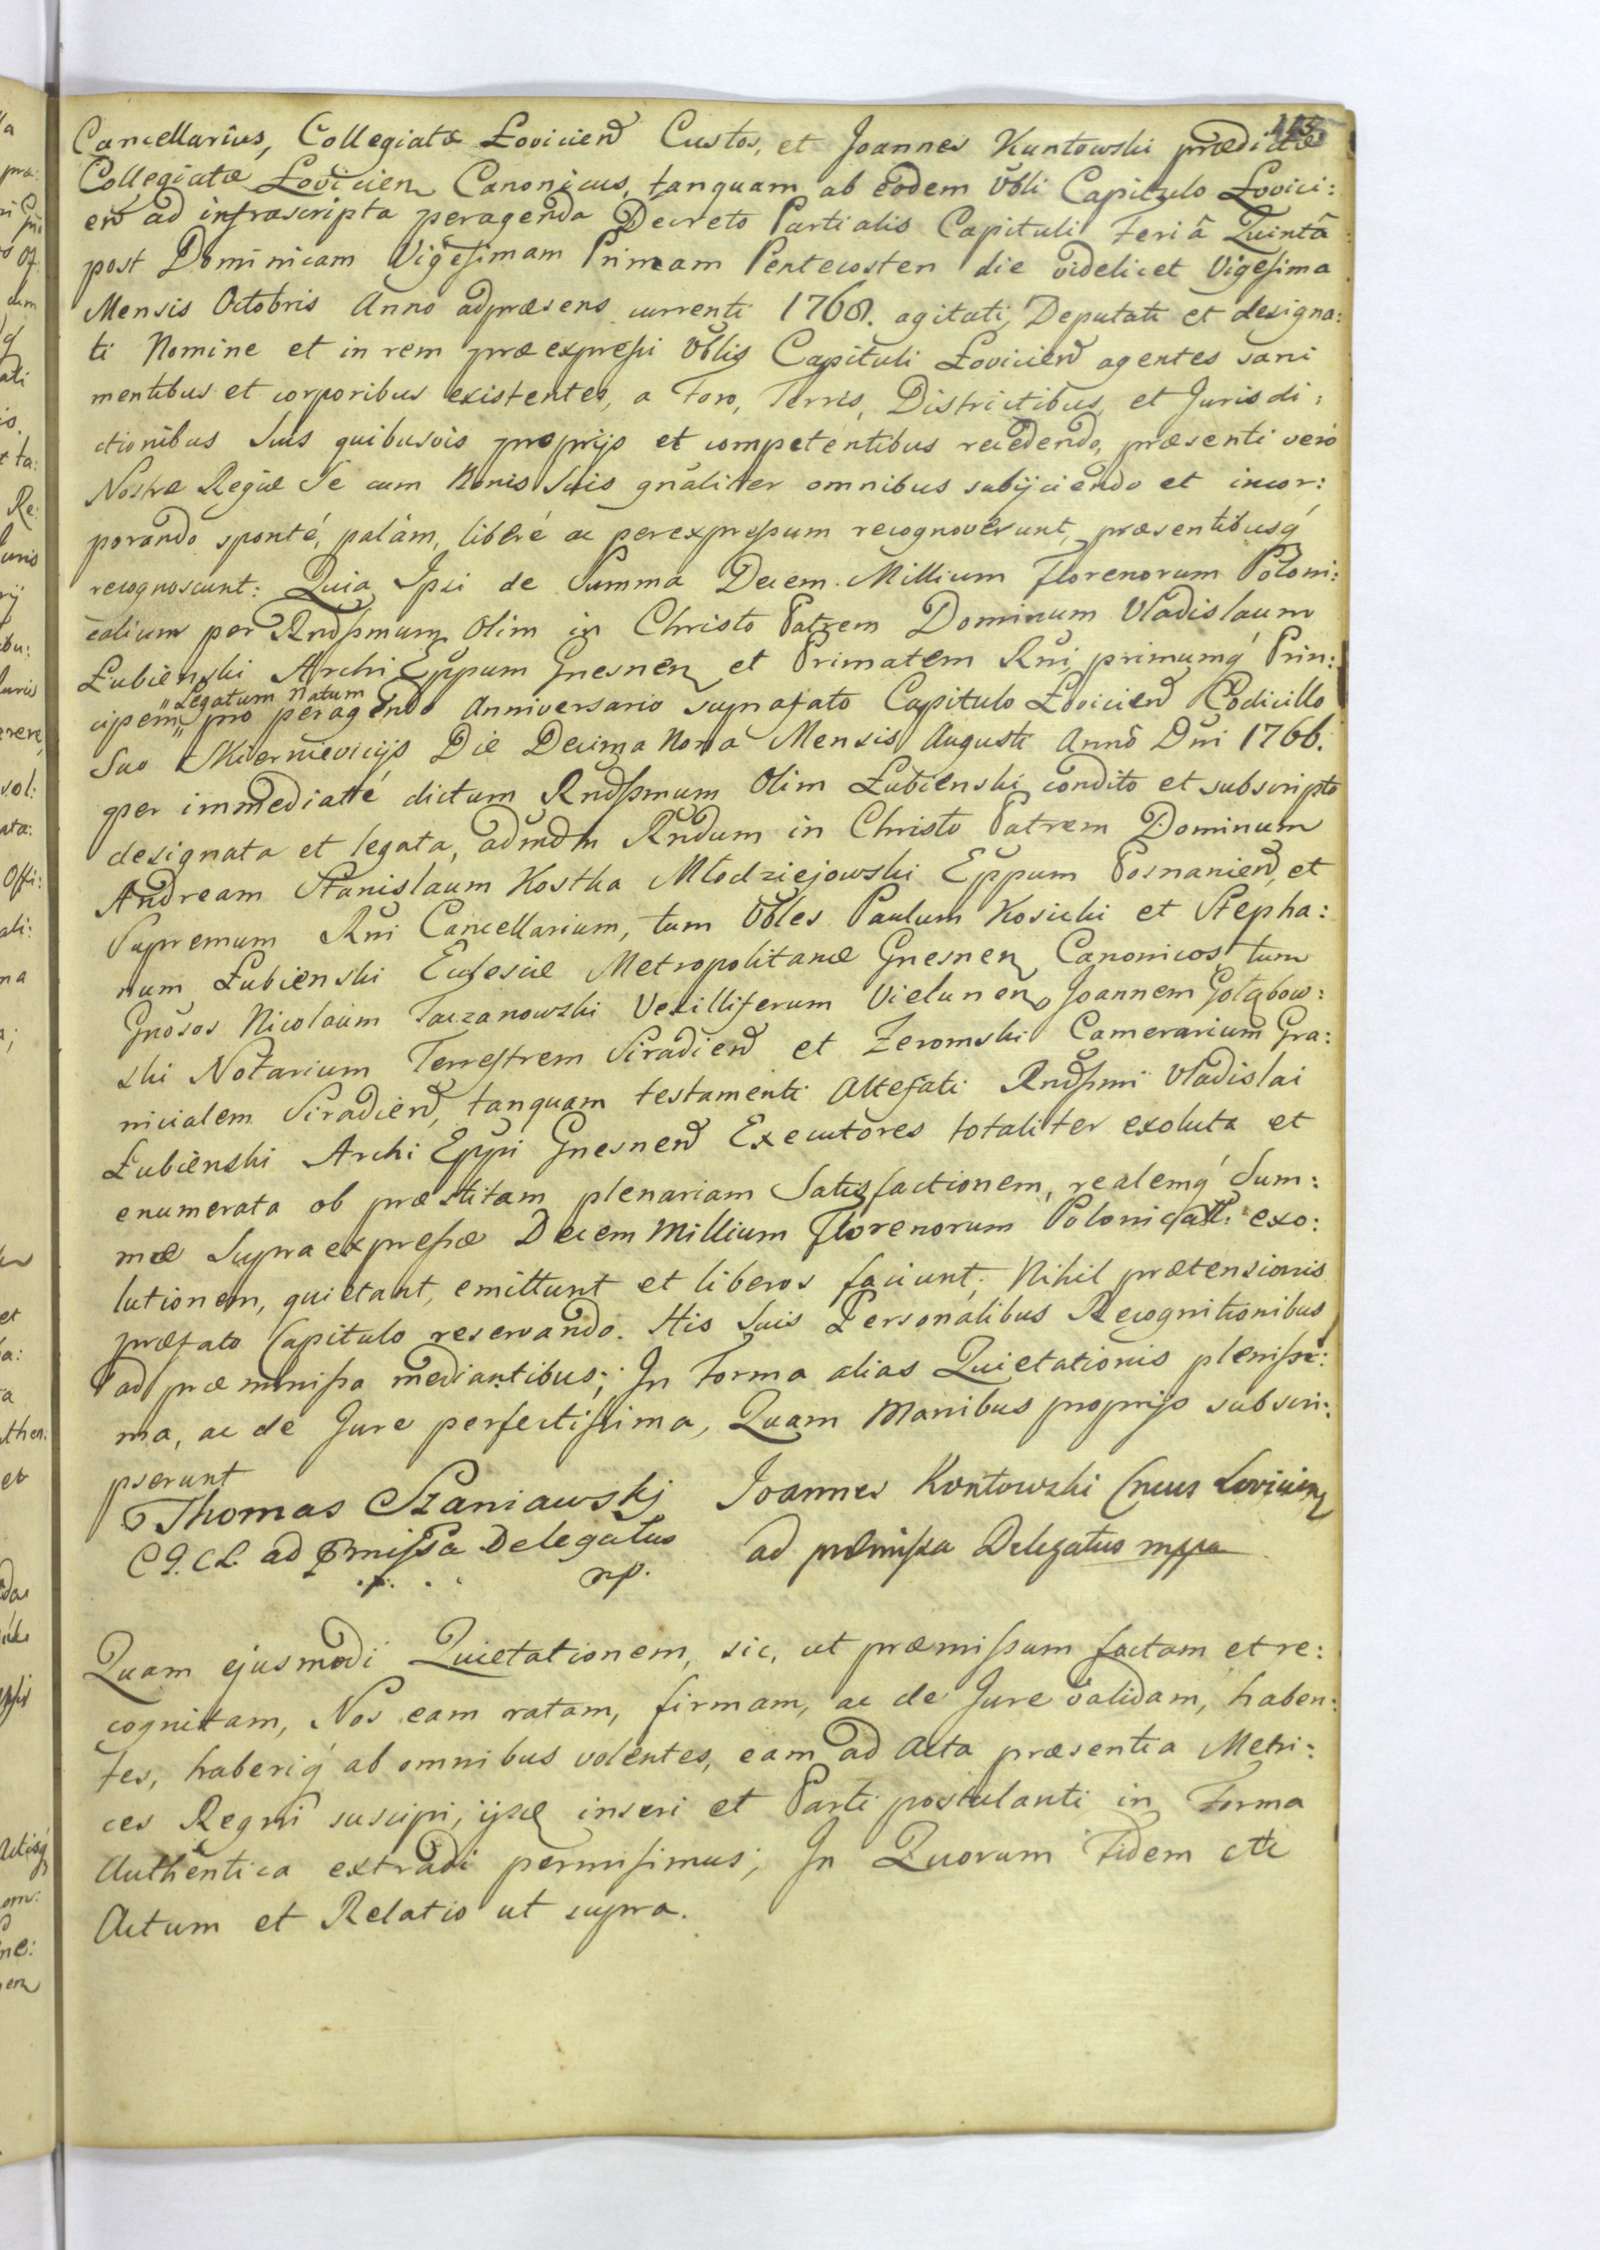 Cancellarius, Collegiatæ Łovicien Custos, et Joannes Kuntowski prædictæ
Collegiatæ Łovicien Canonicus, tanquam ab eodem Vbli Capitulo Łovici:
en ad infrascripta peragenda Decreto Partialis Capituli Feriâ Quintâ
post Dominicam Vigesimam Primam Pentecosten die videlicet Vigesima
Mensis Octobris Anno adpræsens currenti 1768. agitati, Deputati et designa:
ti Nomine et in rem præexpressi Vblis Capituli Łovicien agentes sani
mentibus et corporibus existentes, a Foro, Terris, Districtibus, et Jurisdi:
ctionibus Suis quibusvis proprijs et competentibus recedendo, præsenti vero
Nostræ Regiæ Se cum Bonis Suis gnaliter omnibus subijciendo et incor:
porando sponté, palàm, liberé ac per expressum recognoverunt, præsentibusq́
recognoscunt: Quia Ipsi de Summa Decem Millium Florenorum Poloni:
calium per Rndssmum Olim in Christo Patrem Dominum Vladislaum
Łubienski Archi Eppum Gnesnen et Primatem Rni, primumq́ Prin:
Legatum Natum
cipem, pro peragendo Anniversario suprafato Capitulo Łovicien Codicillo
Suo Skierneviciis Die Decima Nona Mensis Augusti Annô Dni 1766.
per immediatté dictum Rndssmum Olim Łubienski condito et subscripto
designata et legata, admdm Rndum in Christo Patrem Dominum
Andream Stanislaum Kostka Młodziejowski Eppum Posnanien, et
Supremum Rni Cancellarium, tum Vbles Paulum Kosicki et Stepha:
num Łubienski Eclesiæ Metropolitanæ Gnesnen Canonicos, tum
Gnosos Nicolaum Taczanowski Vexilliferum Vielunen, Joannem Gołąbow:
ski Notarium Terrestrem Siradien et Zeromski Camerarium Gra:
nicialem Siradien, tanquam testamenti Altefati Rndssmi Vladislai
Łubienski Archi Eppi Gnesnen Executores totaliter exoluta et
enumerata ob præstitam plenariam Satisfactionem, realemq́ Sum:
mæ Supraexpressæ Decem Millium Florenorum Polonical: exo:
lutionem, quietant, emittunt et liberos faciunt; Nihil prætensionis
præfato Capitulo reservando. His Suis Personalibus Recognitionibus
ad præmissa mediantibus; In Forma alias Quietationis plenissi:
ma, ac de Jure perfectissima, Quam Manibus proprijs subscri:
pserunt
Thomas Szaniawskj Joannes Kontowski Cncus Lovicien
C G. C L. ad Pmissa Delegatus ad præmissa Delegatus mppa
mp.
Quam ejusmodi Quietationem, sic, ut præmissum factam, et re:
cognitam, Nos eam ratam, firmam, ac de Jure validam, haben:
tes, haberiq́ ab omnibus volentes, eam ad Acta præsentia Metri:
ces Regni suscipi, ijsq inseri et Parti postulanti in Forma
Authentica extradi permisimus; In Quorum Fidem etc
Actum et Relatio ut supra.